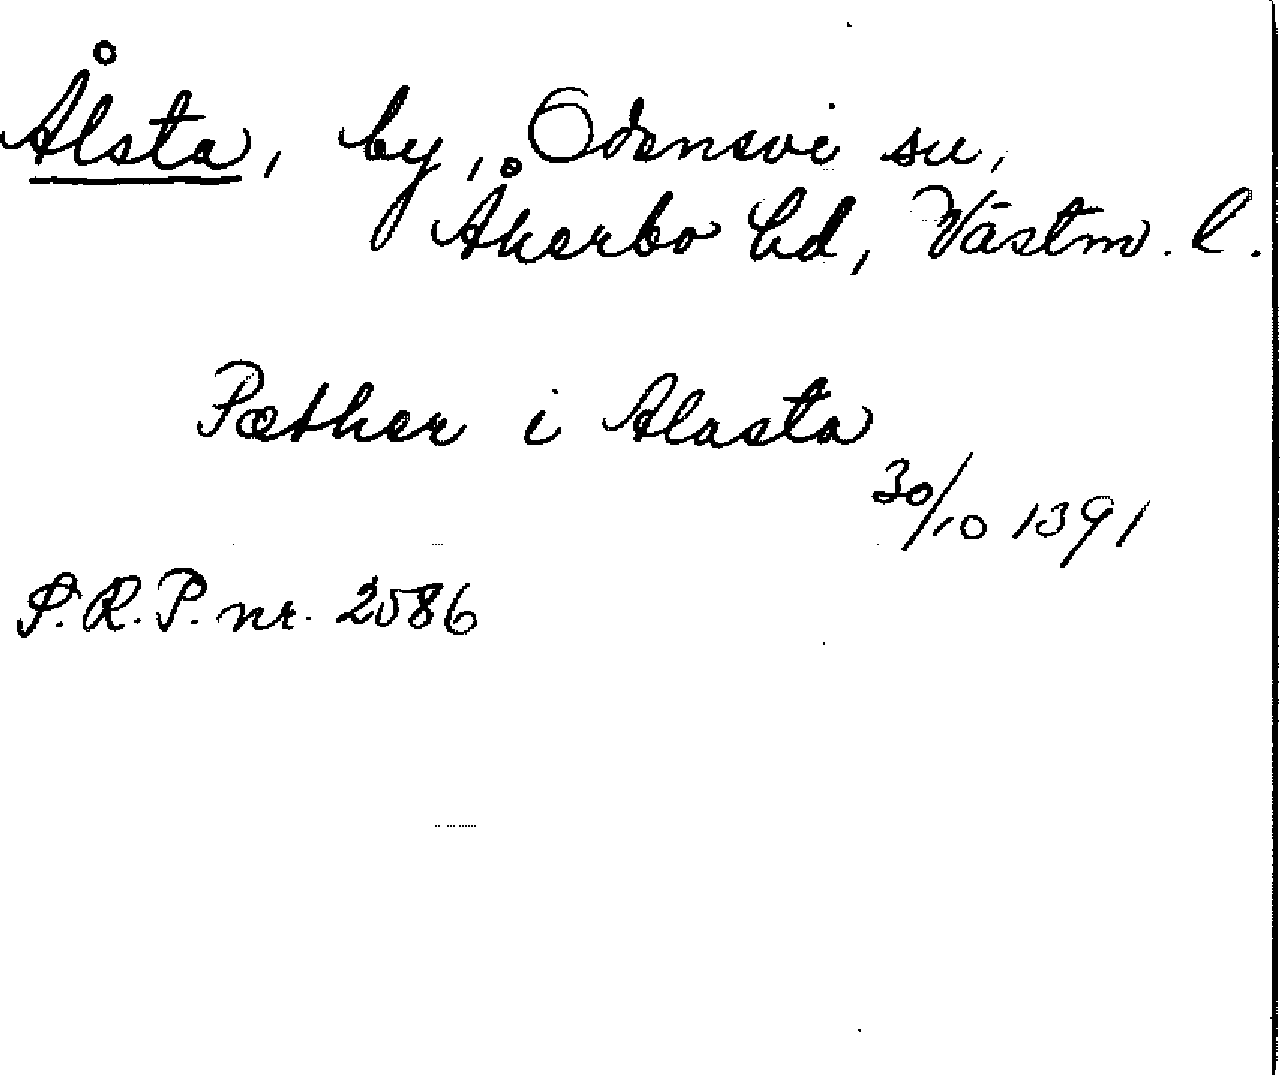 Ålsta, by, Odensvi sn,
Åkerbo hd, Västm. l.
Pæther i Alasta
30/10 1391
S.R.P. nr. 2586